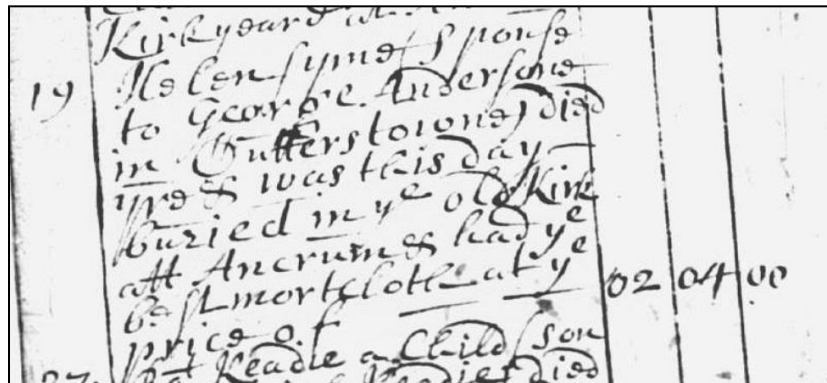 Kirkyeard
19 Helen Syme Spouse
to George Andersone
in Gutterstowne died
yre & was this day
buried in ye old Kirk
att Ancrum & had ye
best mortcloth at ye
price of 02 04 00
Keadie a Child son
died